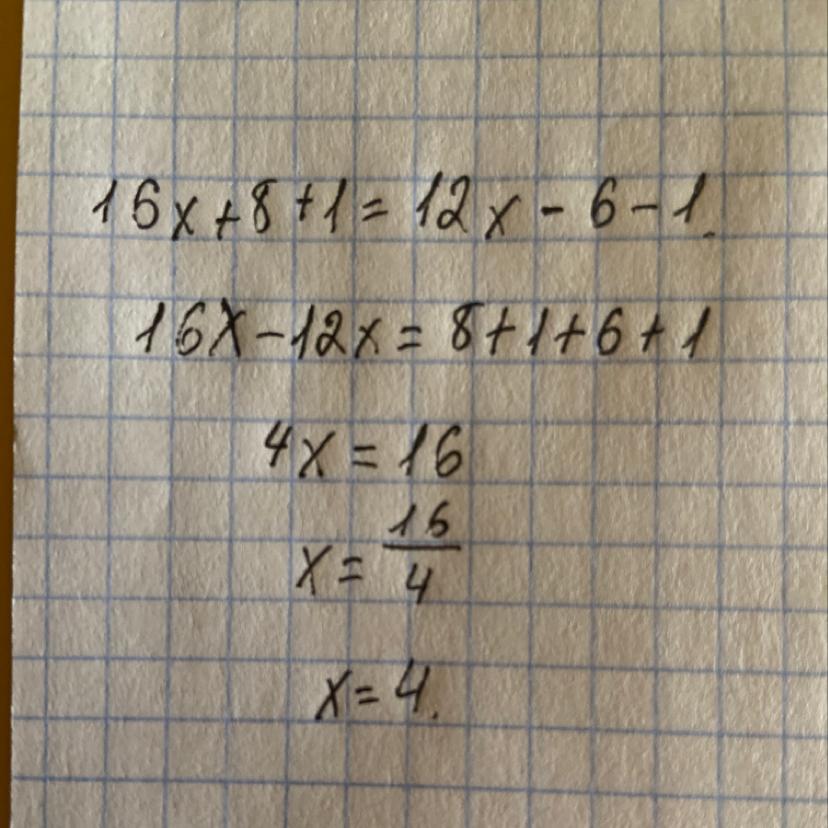 16x+8+1=12x-6-1.
16x-12x=8+1+6+1
4x=16
x=16/4
x=4.